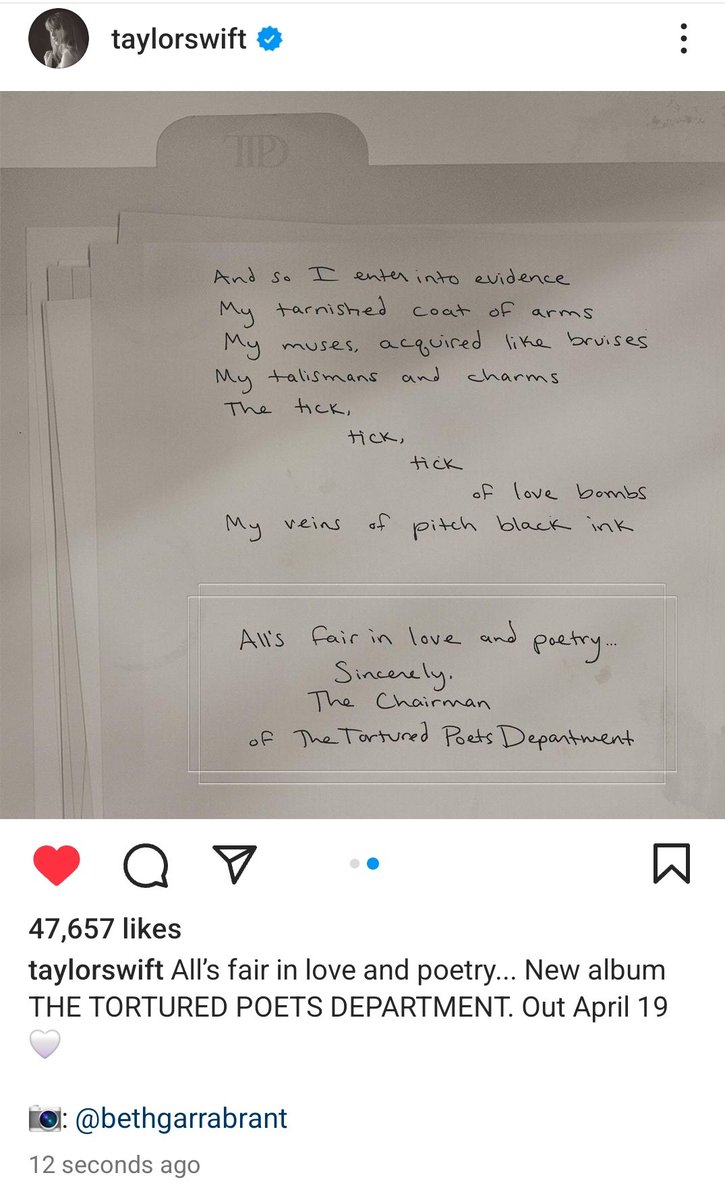 taylorswift
TTPD
And so I enter into evidence
My tarnished coat of arms
My muses, acquired like bruises
My talismans and charms
The tick,
tick,
tick
of love bombs
My veins of pitch black ink
All's fair in love and poetry...
Sincerely,
The Chairman
of The Tortured Poets Department
47,657 likes
taylorswift All’s fair in love and poetry... New album
THE TORTURED POETS DEPARTMENT. Out April 19
🤍
📷: @bethgarrabrant
12 seconds ago